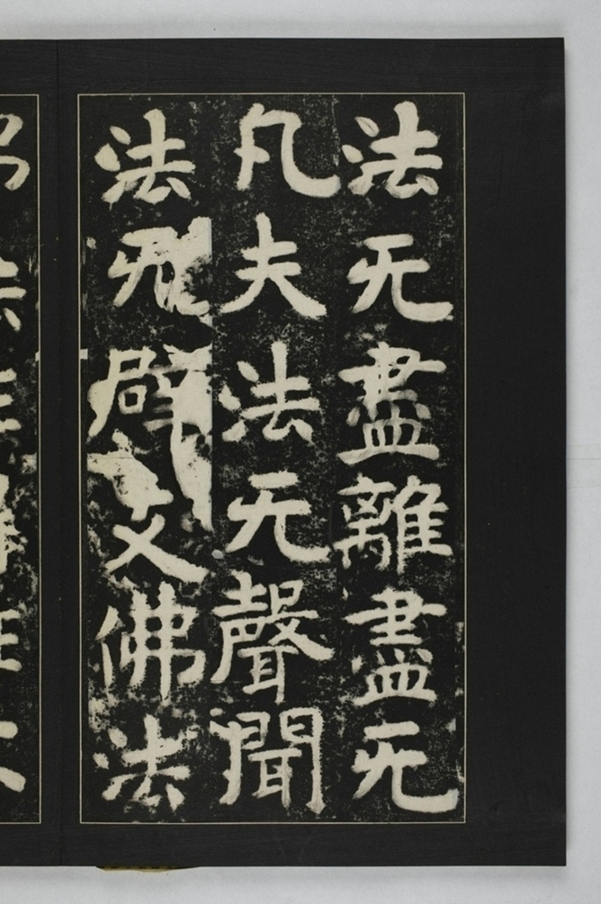 法无盡離盡无
凡夫法无聲聞
法无辟支佛法